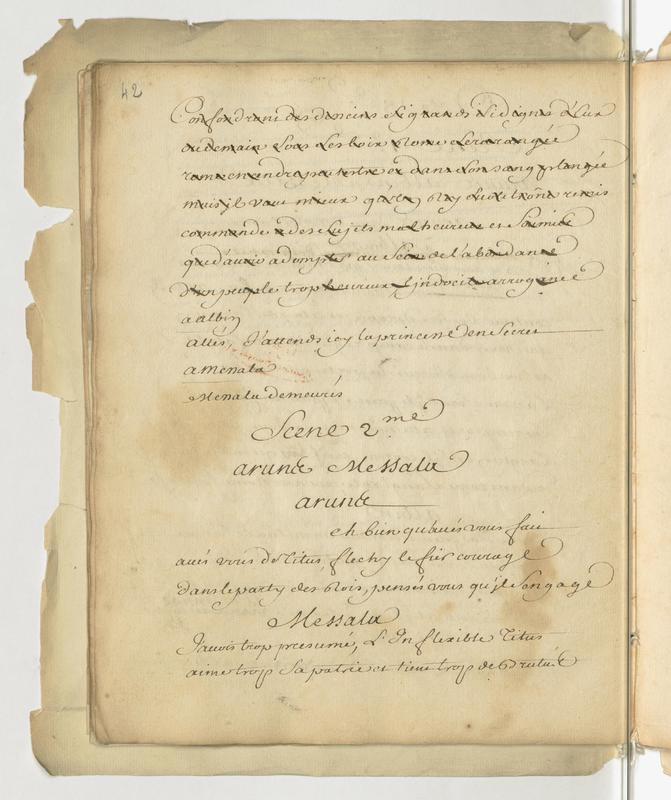 42
Confondront des desseins si grands si dignes d'Eux
ou demain sous les loix Rome sera rangée
rome en cendre peut estre et dans son sang plongée
mais il vaut mieux qu'un Roy sur le trône remis
commande a des sujets malheureux et soumis
que d'avoir a dompter au sein de l'abondance
d'un peuple trop heureux l'indocile arrogance
a albin
allés, J'attends icy la princesse en secret
a Messala
Messala demeurés
Scene 2.me
arunce Messala
arunce
eh bien qu'avés vous fait
avés vous de Titus flechy le fier courage
dans le party des Rois, pensés vous qu'il s'engage
Messala
J'avois trop presumé, L'Inflexible Titus
aime trop Sa patrie et tient trop de